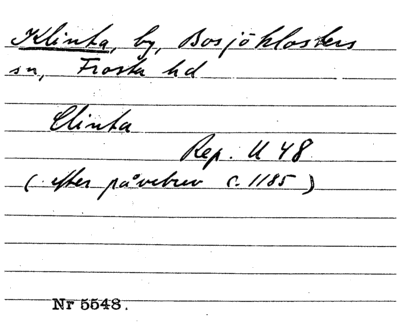 Klinta, by, Bosjöklosters
sn, Frosta hd
Clinta
Rep. U 48
(efter påvebrev c. 1185)
Nr 5548.